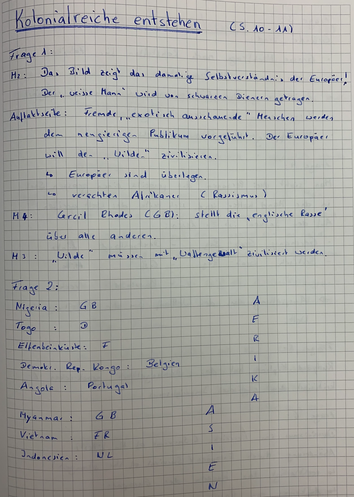 Kolonialreiche entstehen (S. 10-11)
Frage 1:
M2: Das Bild zeigt das damalige Selbstverständnis der Europäer!
Der „weisse Mann" wird von schwarzen Dienern getragen.
Auftaktseite: Fremde, „exotisch ausschauende" Menschen werden
dem neugierigen Publikum vorgeführt. Der Europäer
will den „Wilden" zivilisieren.
↳ Europäer sind überlegen.
↳ verachten Afrikaner (Rassismus)
M4: Cecil Rhodes (GB): stellt die „englische Rasse"
über alle anderen.
M3: „Wilde" müssen mit „Waffengewalt" zivilisiert werden.
Frage 2:
Nigeria: GB
Togo: D
Elfenbeinküste: F
Demokr. Rep. Kongo: Belgien
Angola: Portugal
AFRIKA
Myanmar: GB
Vietnam: FR
Indonesien: NL
ASIEN